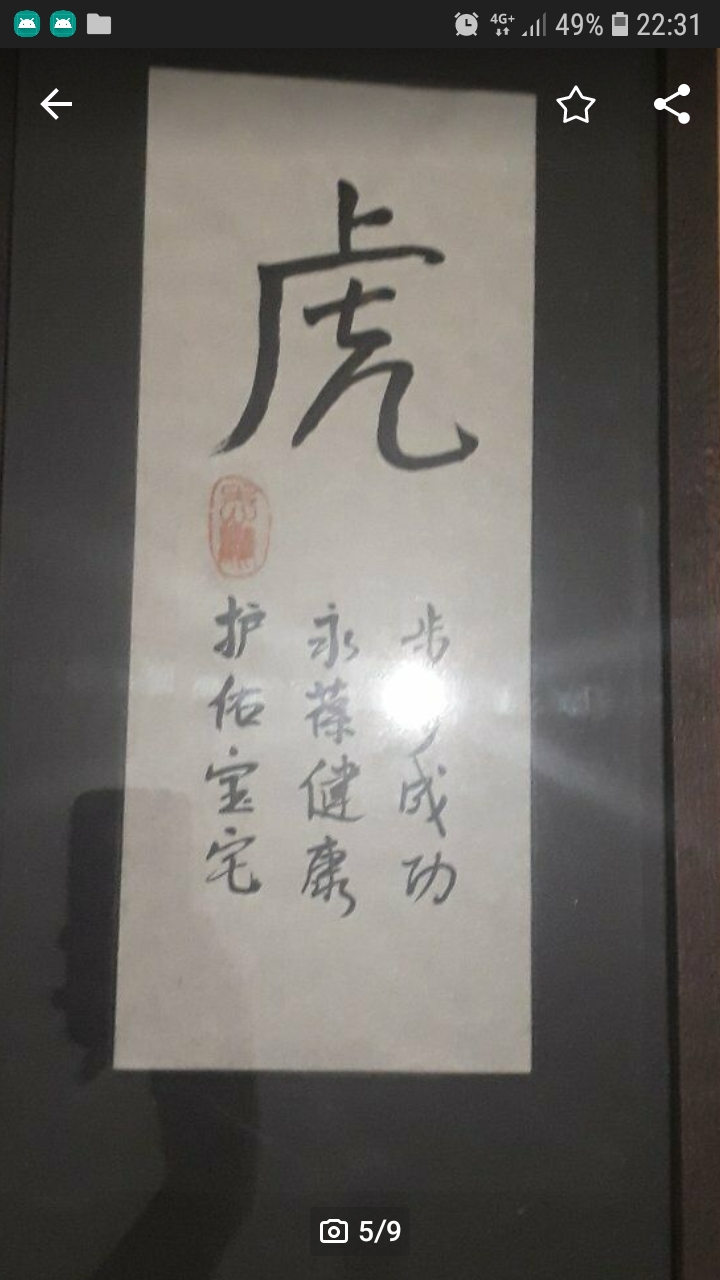 4G+ 49% 22:31
虎
步成功
永葆健康
护佑宝宅
5/9